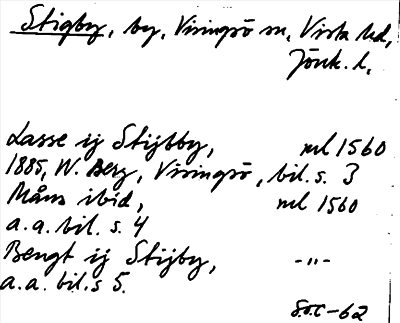 Stigby, by, Visingsö sn, Vista hd,
Jönk. l.
Lasse ij Stijbby, ml 1560
1885, W. Berg, Visingsö, bil. s. 3
Måns ibid, ml 1560
a.a. bil. s. 4
Bengt ij Stijby, -"-
a.a. bil. s 5.
-62